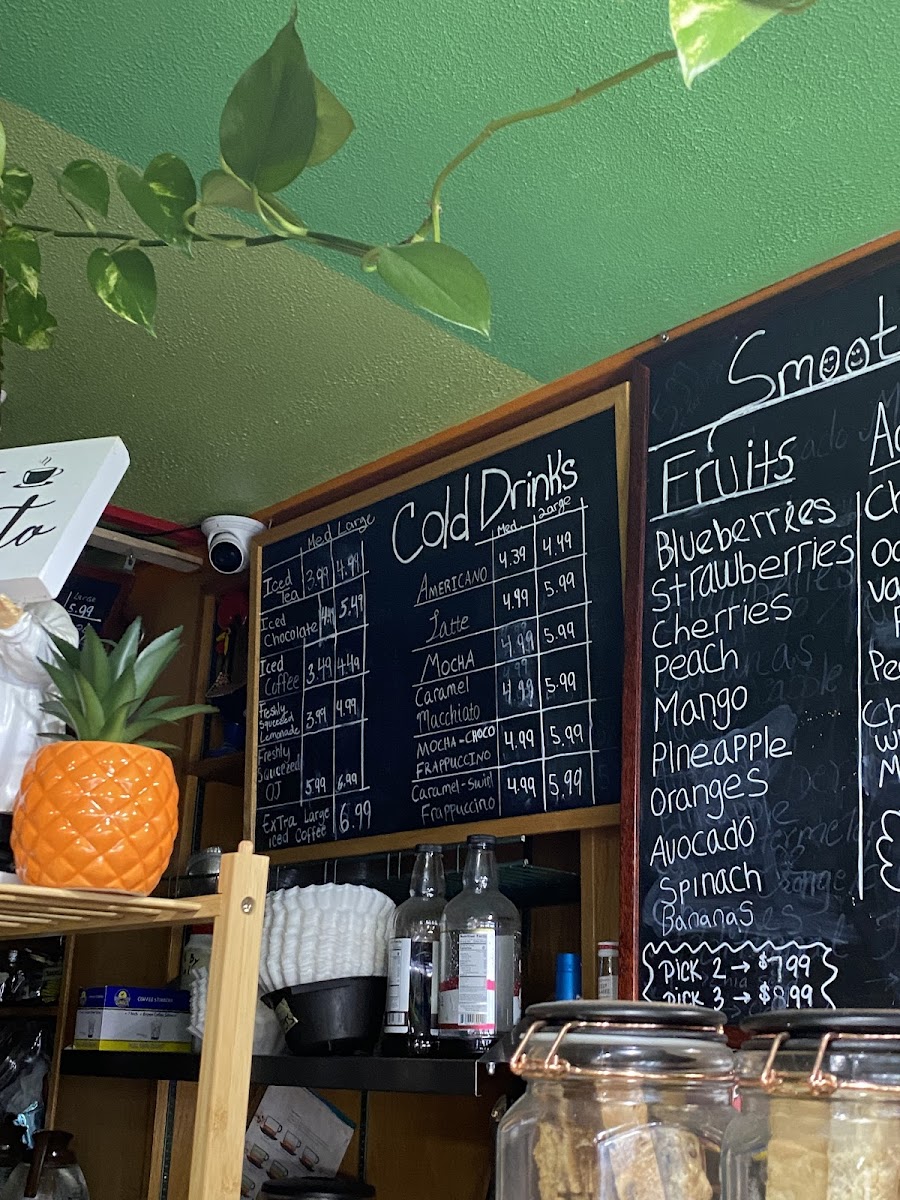 to
Large
5.99
Cold Drinks
Med Large
Iced Tea 3.99 4.99
Iced Chocolate 5.49
Iced Coffee 3.49 4.49
Freshly Squeezed Lemonade 3.99 4.99
Freshly Squeezed OJ 5.99 6.99
Extra Large Iced Coffee 6.99
Med. Large
Americano 4.39 4.49
Latte 4.99 5.99
Mocha 4.99 5.99
Caramel Macchiato 4.99 5.99
Mocha-Choco Frappuccino 4.99 5.99
Caramel-Swirl Frappuccino 4.99 5.99
Smoot
Fruits
Blueberries
Strawberries
Cherries
Peach
Mango
Pineapple
Oranges
Avocado
Spinach
Bananas
Pick 2 → $7.99
Pick 3 → $8.99
COFFEE STIRRERS